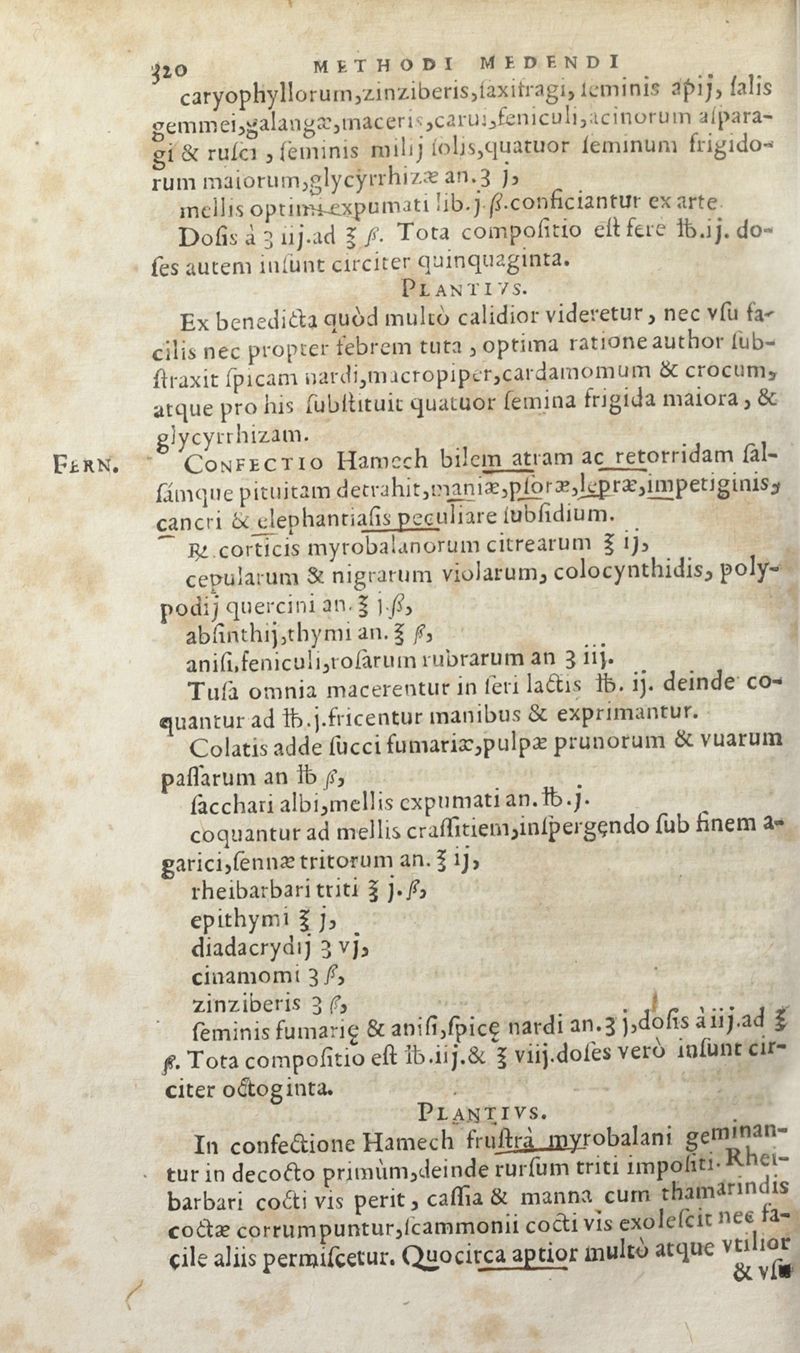 320 METHODI MEDENDI
caryophyllorum,zinziberis,ſaxifragi, ſeminis apij, ſalis
gemmei,galangæ,maceris,carui,feniculi,acinorum aſpara-
gi & ruſci , ſeminis milij ſolis,quatuor ſeminum frigido-
rum maiorum,glycyrrhizæ an.ʒ j,
mellis optimi expumati lib.j.ß.conficiantur ex arte.
Doſis à ʒ iij.ad ℥ ß. Tota compoſitio eſt fere ℔.ij. do-
ſes autem inſunt circiter quinquaginta.
PLANTIVS.
Ex benedicta quòd multò calidior videretur, nec vſu fa-
cilis nec propter febrem tuta , optima ratione author ſub-
ſtraxit ſpicam nardi,macropiper,cardamomum & crocum,
atque pro his ſubſtituit quatuor ſemina frigida maiora, &
glycyrrhizam.
FERN. CONFECTIO Hamech bilem atram ac retorridam ſal-
ſamque pituitam detrahit,maniæ,pſoræ,lepræ,impetiginis,
cancri & elephantiaſis peculiare ſubſidium.
℞.corticis myrobalanorum citrearum ℥ ij,
cepularum & nigrarum violarum, colocynthidis, poly-
podij quercini an.℥ j.ß,
abſinthij,thymi an.℥ ß,
aniſi,feniculi,roſarum rubrarum an ʒ iij.
Tuſa omnia macerentur in ſeri lactis ℔. ij. deinde co-
quantur ad ℔.j.fricentur manibus & exprimantur.
Colatis adde ſucci fumariæ,pulpæ prunorum & vuarum
paſſarum an ℔ ß,
ſacchari albi,mellis expumati an.℔.j.
coquantur ad mellis craſſitiem,inſpergẹndo ſub finem a-
garici,ſennæ tritorum an.℥ ij,
rheibarbari triti ℥ j.ß,
epithymi ℥ j,
diadacrydij ʒ vj,
cinamomi ʒ ß,
zinziberis ʒ ß,
ſeminis fumarię & aniſi,ſpicę nardi an.ʒ j,doſis à iij.ad ℥
ß. Tota compoſitio eſt ℔.iij.& ℥ viij.doſes verò inſunt cir-
citer octoginta.
PLANTIVS.
In confectione Hamech fruſtrà myrobalani geminan-
tur in decocto primùm,deinde rurſum triti impoſiti. Rhei-
barbari cocti vis perit, caſſia & manna cum thamarindis
coctæ corrumpuntur,ſcammonii cocti vis exoleſcit nec fa-
cile aliis permiſcetur. Quocirca aptior multò atque vtilior
& vſu